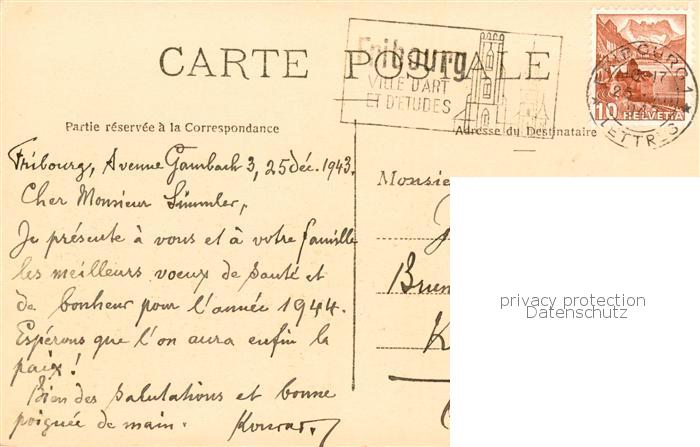 CARTE POSTALE
Fribourg
VILLE D'ART
ET D'ETUDES
FRIBOURG 1
-17
25
LETTRES
10 HELVETIA
Partie réservée à la Correspondance
Adresse du Destinataire
Fribourg, Avenue Gambach 3, 25 déc. 1943.
Cher Monsieur Sümmler,
Je présente à vous et à votre famille
les meilleurs voeux de santé et
de bonheur pour l'année 1944.
Espérons que l'on aura enfin la
paix!
Bien des salutations et bonne
poignée de main. Konrad
Monsie
Buen
K
privacy protection
Datenschutz